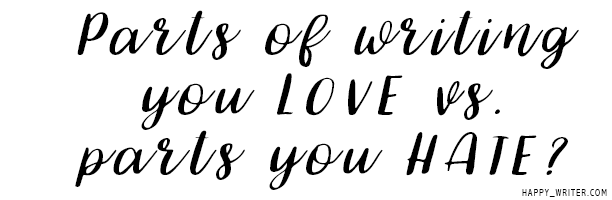 Parts of writing
you LOVE vs.
parts you HATE?
HAPPY_WRITER.COM